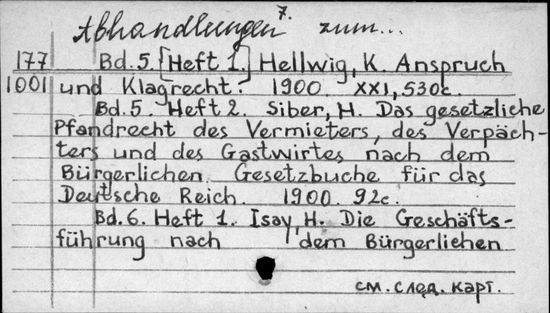 7.
Abhandlungen zum...
177 Bd. 5 [Heft 1.] Hellwig, K. Anspruch
1001 und Klagrecht. 1900. XXI, 530c.
Bd. 5. Heft 2. Siber, H. Das gesetzliche
Pfandrecht des Vermieters, des Verpäch-
ters und des Gastwirtes nach dem
Bürgerlichen Gesetzbuche für das
Deutsche Reich. 1900. 92c.
Bd. 6. Heft 1. Isay, H. Die Geschäfts-
führung nach dem Bürgerliehen
см. след. карт.